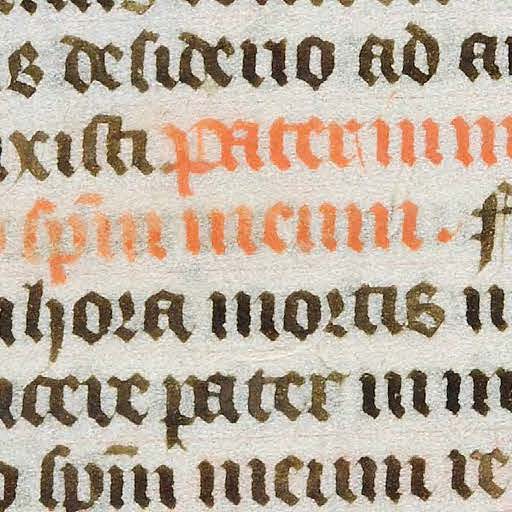 desiderio ad
dixisti pater in m
spm meum. F
hora mortis
dicere pater in m
spm meum re